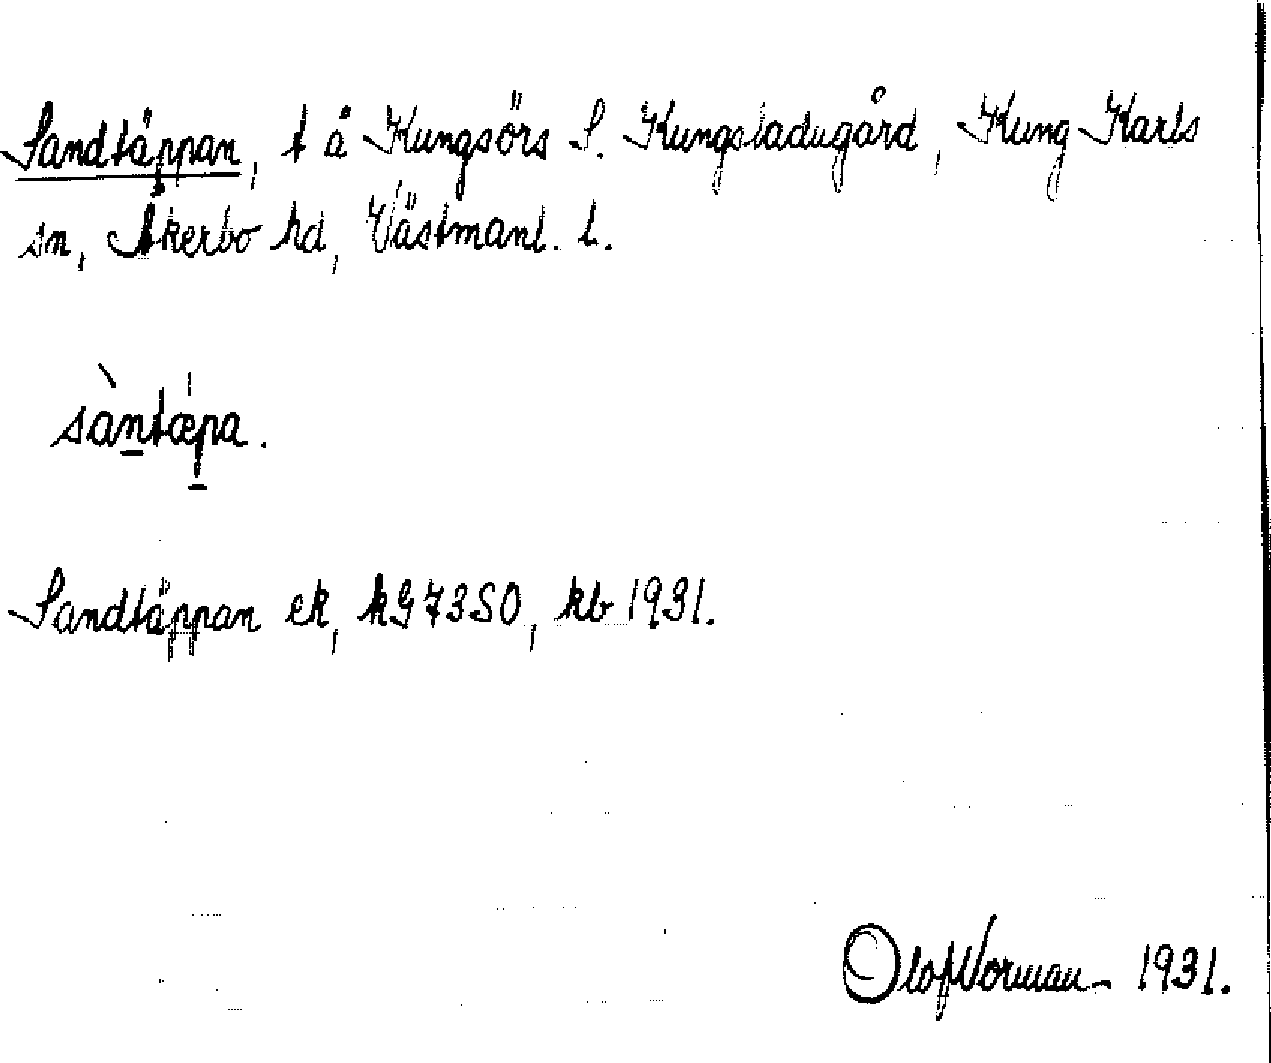 Sandtäppan, t å Kungsörs S. Kungsladugård, Kung Karls
sn, Åkerbo hd, Västmanl. l.
sàntæ̍pa.
Sandtäppan ek, kG73SO, kb 1931.
Olof Norman - 1931.